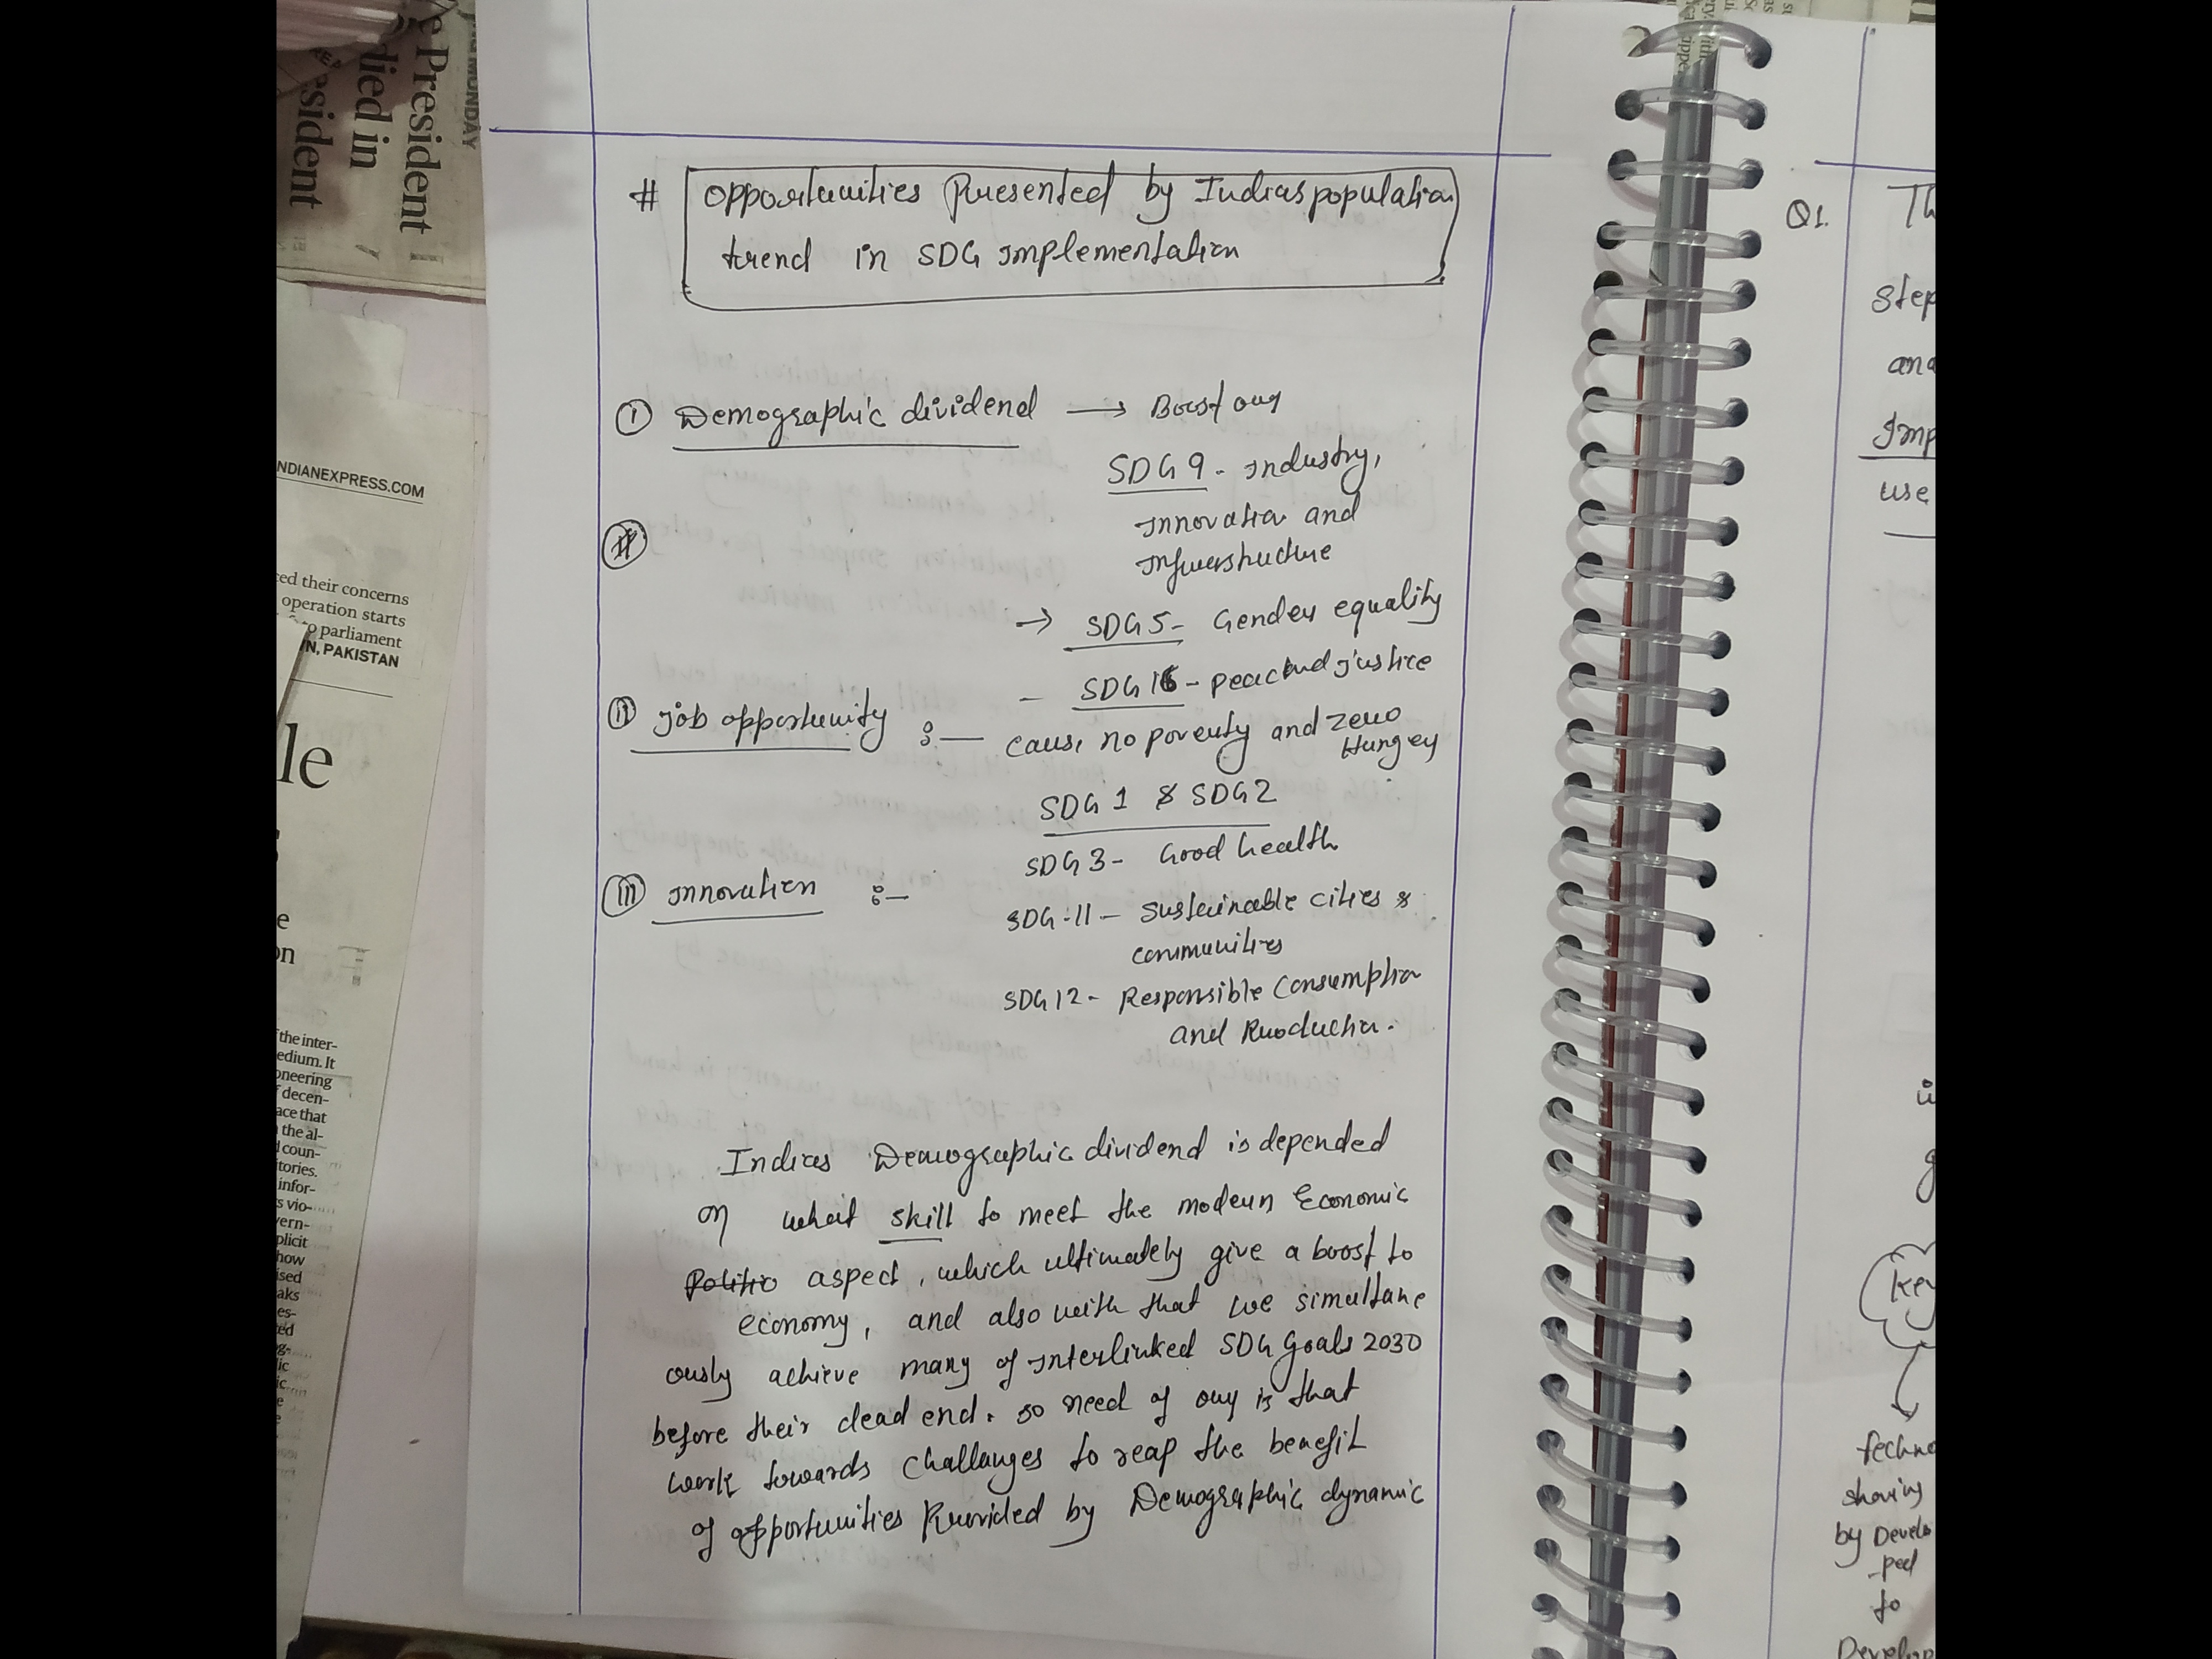 # Opportunities Presented by Indias population
trend in SDG Implementation
① Demographic dividend → Boost our
SDG 9 - Industry,
Innovation and
Infrastructure
→ SDG 5 - Gender equality
- SDG 16 - peace and justice
② Job opportunity :— cause no poverty and zero
Hunger
SDG 1 & SDG 2
SDG 3 - Good health
③ Innovation :—
SDG-11 - Sustainable cities &
communities
SDG 12 - Responsible Consumption
and Production.
Indias Demographic dividend is depended
on what skill to meet the modern Economic
aspect, which ultimately give a boost to
economy, and also with that we simultane
ously achieve many of interlinked SDG Goals 2030
before their dead end. so need of our is that
work towards challanges to reap the benefit
of opportunities Provided by Demographic dynamic
Q1. Th
step
and
Imp
use
Key
techno
sharing
by Develo
-ped
to
Develop
e President
died in
esident
MONDAY
INDIANEXPRESS.COM
ced their concerns
operation starts
to parliament
N, PAKISTAN
le
e
on
f the inter-
edium. It
oneering
f decen-
ace that
the al-
l coun-
itories.
infor-
s vio-
vern-
plicit
how
ised
aks
es-
ted